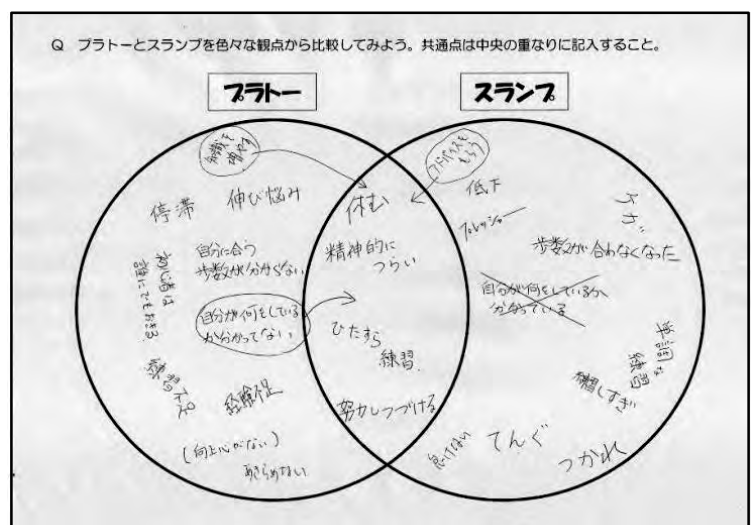 Q プラトーとスランプを色々な観点から比較してみよう。共通点は中央の重なりに記入すること。
プラトー
スランプ
知識を
増やす
停滞
伸び悩み
自分に合う
歩数が分からない
初心者は
誰にでもおきる
自分が何をしている
か分かってない
練習不足
経験不足
(向上心がない)
あきらめない
休む
精神的に
つらい
ひたすら
練習
努力しつづける
アドバイスを
もらう
低下
プレッシャー
ケガ
歩数が合わなくなった
自分が何をしているか
分かっている
単調な
練習
練習しすぎ
怠けない
てんぐ
つかれ